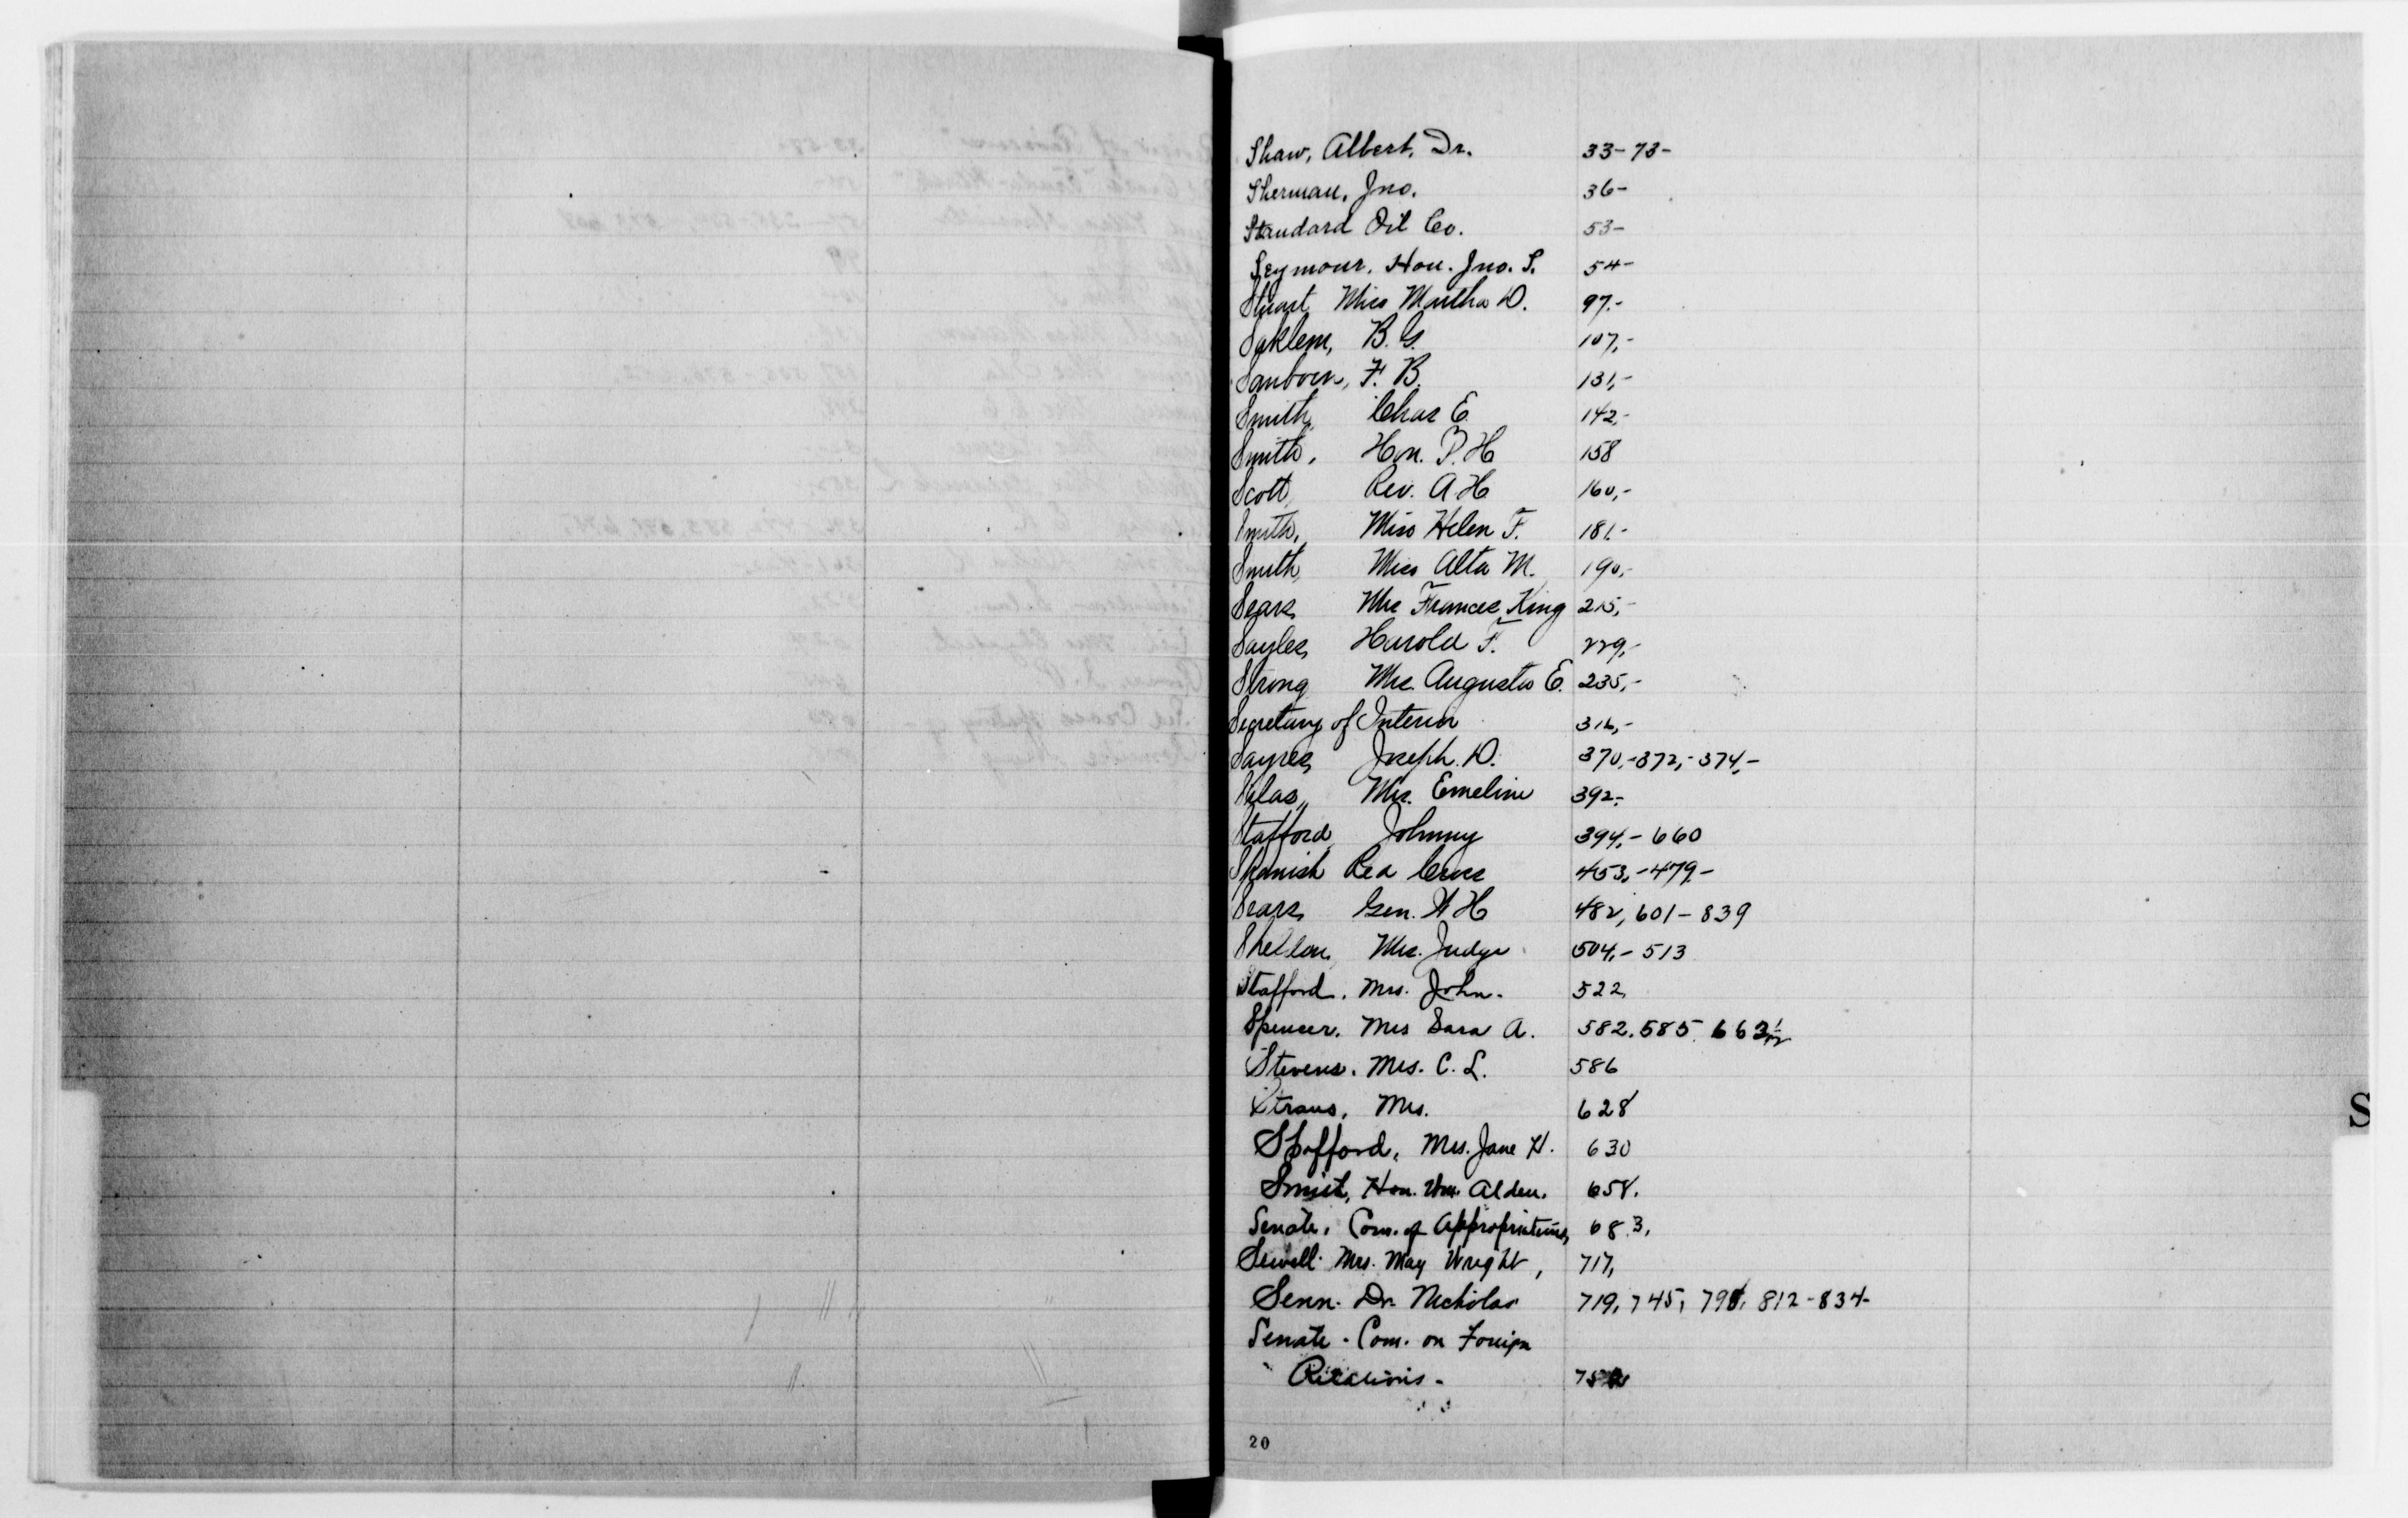 Shaw, Albert, Dr. 33-73-
Sherman, Jno. 36-
Standard Oil Co. 53-
Seymour, Hon. Jno. S. 54-
Stuart, Miss Martha D. 97.-
Saklem, B. G. 107,-
Sanborn, F. B. 131,-
Smith, Chas E. 142,-
Smith, Hon. P. H 158
Scott, Rev. A. H 160,-
Smith, Miss Helen F. 181.-
Smith, Miss Alta M. 190,-
Sears, Mrs Frances King 215,-
Sayles, Harold F. 229,-
Strong Mrs. Augusta E. 235,-
Secretary of Interior 316,-
Sayres, Joseph. D. 370,-372,-374,-
Mrs. Emeline 392-
Stafford, Johnny 394,-660
Spanish Red Cross 453,-479-
Sears, Gen. W H 482, 601-839
Mrs. Judge 504,-513
Stafford, Mrs. John. 522,
Spencer, Mrs Sara A. 582. 585. 663½
Stevens, Mrs. C. L. 586
Straus, Mrs. 628
Spofford, Mrs. Jane H. 630
Smith, Hon. Wm. Alden. 658.
Senate, Com. of Appropriations, 683,
Sewell. Mrs. May Wright, 717,
Senn. Dr. Nicholas 719, 745, 812-834-
Senate - Com. on Foreign
Relations -
20
S